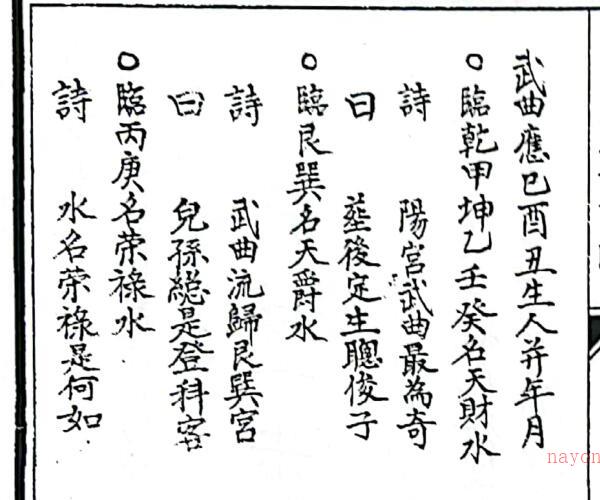 武曲應巳酉丑生人并年月
○臨乾甲坤乙壬癸名天財水
詩　陽宮武曲最為奇
曰　塟後定生聰俊子
○臨艮巽名天爵水
詩　武曲流歸艮巽宮
曰　兒孫縂是登科客
○臨丙庚名荣禄水
詩　水名荣禄是何如
nayon